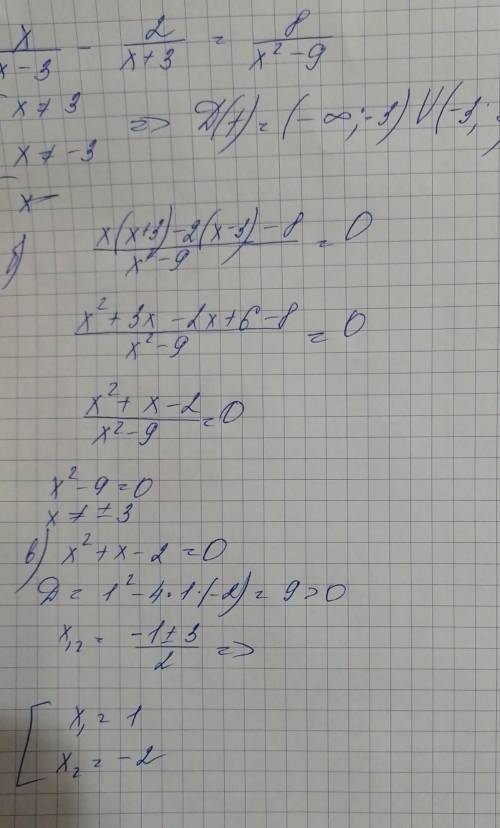 x/(x-3) - 2/(x+3) = 8/(x²-9)
x ≠ 3
x ≠ -3 => D(f) = (-∞; -3) U (-3;
б) (x(x+3)-2(x-3)-8)/(x²-9) = 0
(x²+3x-2x+6-8)/(x²-9) = 0
(x²+x-2)/(x²-9) = 0
x²-9=0
x ≠ ±3
в) x²+x-2=0
D = 1²-4·1·(-2) = 9>0
x₁,₂ = (-1±3)/2 =>
[ x₁ = 1
x₂ = -2